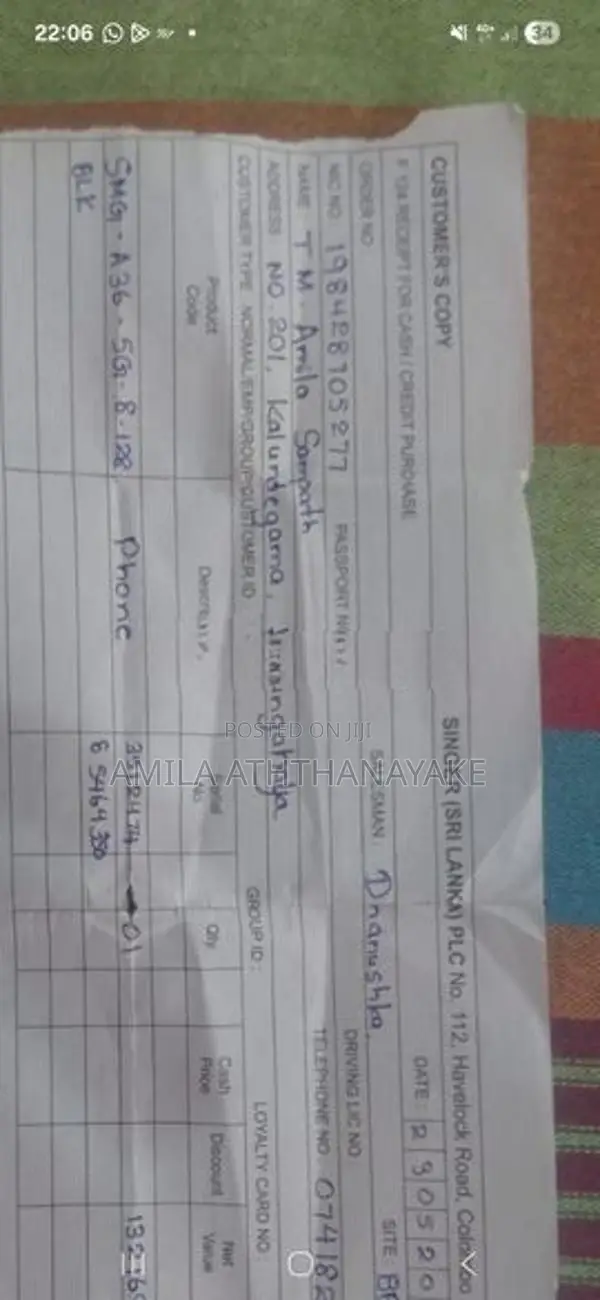 22:06
34
CUSTOMER'S COPY
SINGER (SRI LANKA) PLC No. 112, Havelock Road, Colombo
F 134 RECEIPT FOR CASH / CREDIT PURCHASE
DATE : 2 3 0 5 2 0
ORDER NO
SALESMAN : Dhanushka
SITE :
NIC NO 198428705277
PASSPORT
DRIVING LIC NO
NAME T M Amila Sampath
TELEPHONE NO : 074182
ADDRESS NO 201, Kalundegama,
CUSTOMER TYPE NORMAL/EMP/GROUP CUSTOMER ID :
GROUP ID :
LOYALTY CARD NO :
Product Code
Serial No
Qty
Cash Price
Discount
Net Value
SMG - A36 - 5G - 8 - 128 phone
01
BLK
65464350
POSTED ON JIJI
AMILA ATHTHANAYAKE